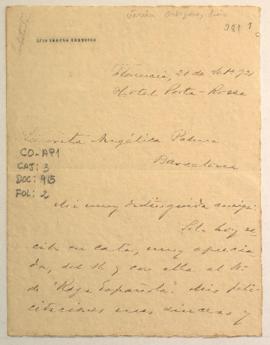 1
LUIS VARELA ORBEGOSO
Florencia, 20 de
Hotel Porta-Rossa
Señorita Angélica Palma
Barcelona
CO-AP1
CAJ: 3
DOC: 913
FOL: 2
Mi muy distinguida amiga:
hoy re-
cibí su carta, muy aprecia
da, del 16 y con ella el Nº
de "Raza Española". Mis feli
citaciones mas sinceras y